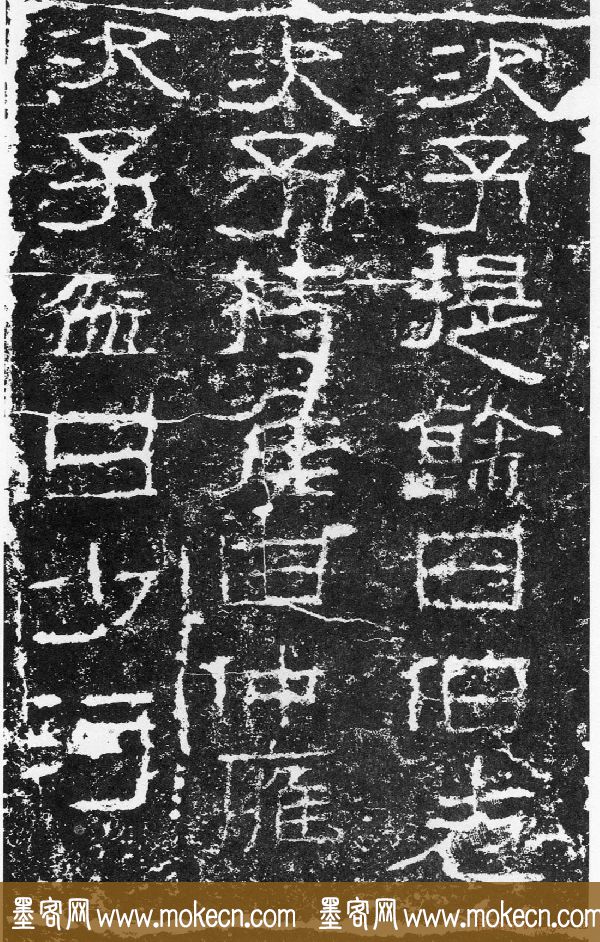 次子提餘曰伯老
次子持侯曰仲雍
次子盆曰少河
墨客网 www.mokecn.com 墨客网 www.mokecn.com